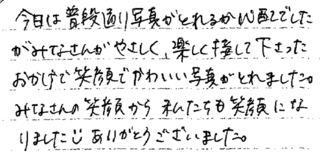 今日は普段通り写真がとれるか心配でした
がみなさんがやさしく、楽しく接して下さった
おかげで笑顔でかわいい写真がとれました。
みなさんの笑顔から私たちも笑顔にな
りました☺ ありがとうございました。